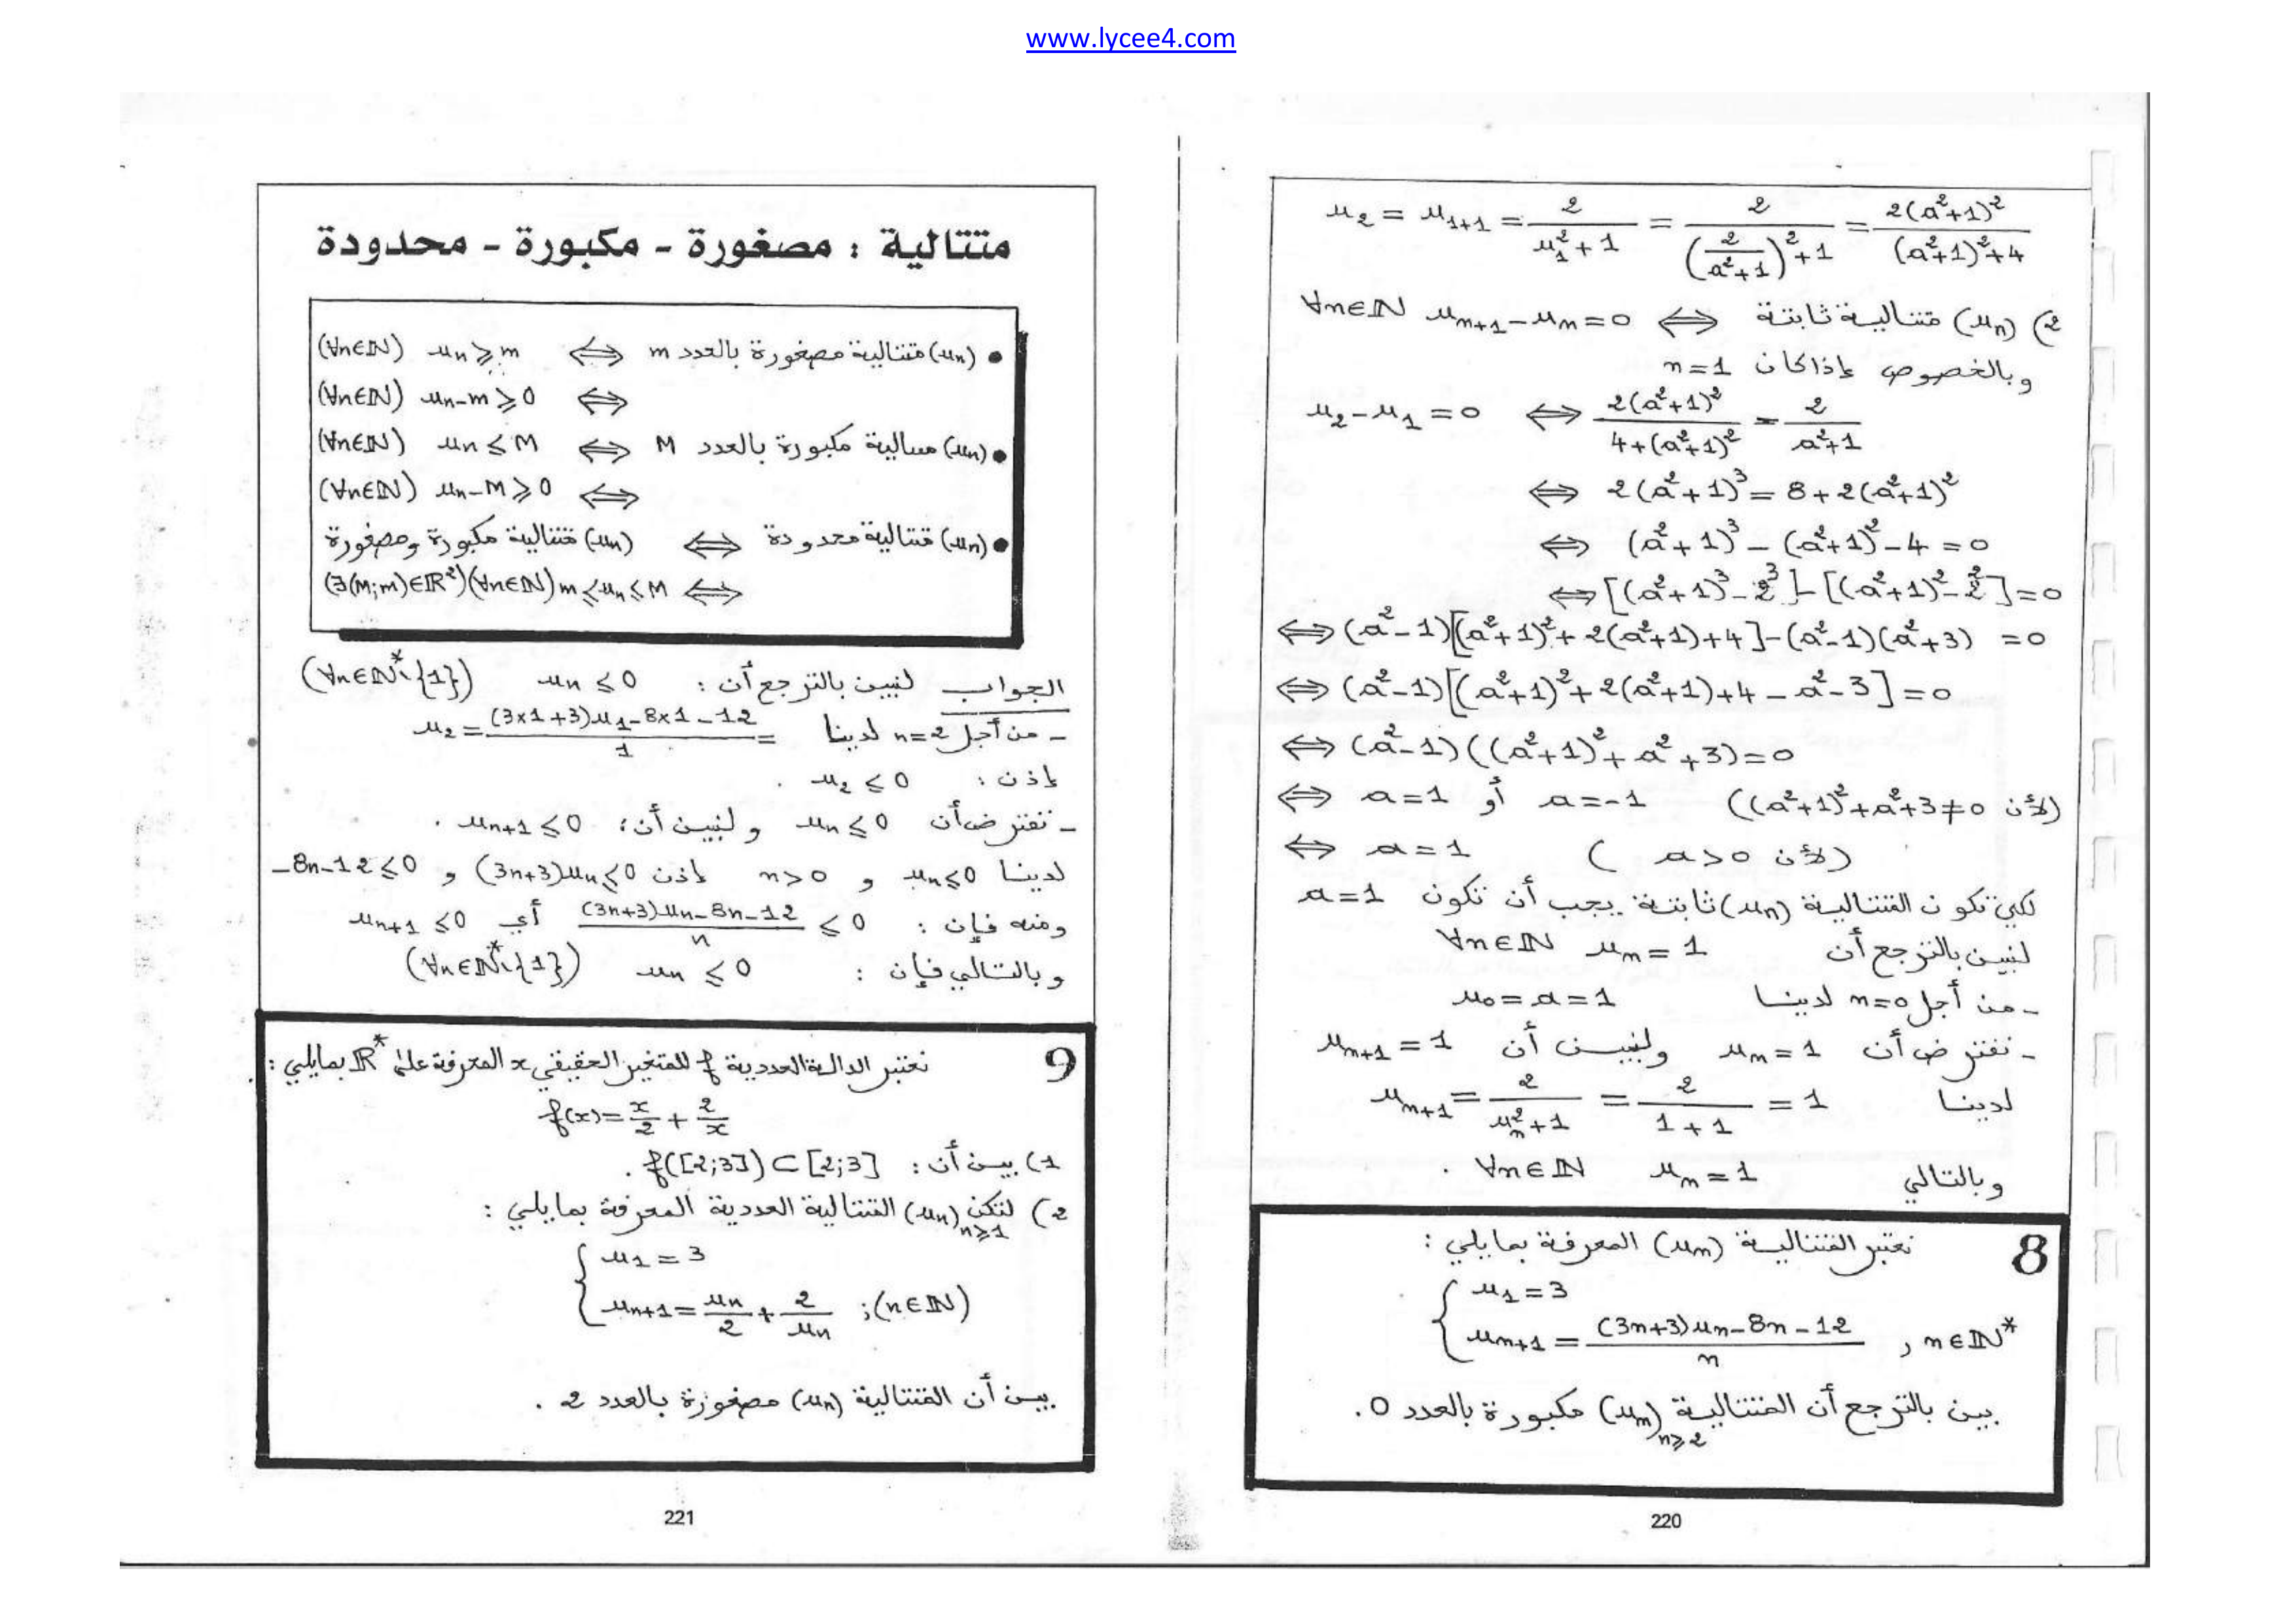 www.lycee4.com
u₂ = u₁₊₁ = 2/(u₁²+1) = 2/((2/(a²+1))²+1) = 2(a²+1)²/((a²+1)²+4)
2) (uₙ) متتالية ثابتة ⇔ ∀n∈ℕ uₙ₊₁-uₙ=0
وبالخصوص إذا كان n=1
u₂-u₁=0 ⇔ 2(a²+1)²/(4+(a²+1)²) = 2/(a²+1)
⇔ 2(a²+1)³ = 8+2(a²+1)²
⇔ (a²+1)³ - (a²+1)² - 4 = 0
⇔ [(a²+1)³-2³]-[(a²+1)²-2²]=0
⇔ (a²-1)[(a²+1)²+2(a²+1)+4]-(a²-1)(a²+3) = 0
⇔ (a²-1)[(a²+1)²+2(a²+1)+4-a²-3]=0
⇔ (a²-1)((a²+1)²+a²+3)=0
⇔ a=1 أو a=-1 (لأن (a²+1)²+a²+3≠0)
⇔ a=1 (لأن a>0)
لكي تكون المتتالية (uₙ) ثابتة يجب أن تكون a=1
لنبين بالترجع أن ∀n∈ℕ uₙ=1
- من أجل n=0 لدينا u₀=a=1
- نفترض أن uₙ=1 ولنبين أن uₙ₊₁=1
لدينا uₙ₊₁ = 2/(uₙ²+1) = 2/(1+1) = 1
وبالتالي ∀n∈ℕ uₙ=1 .
8 نعتبر المتتالية (uₙ) المعرفة بمايلي :
{ u₁=3
uₙ₊₁ = ((3n+3)uₙ-8n-12)/n , n∈ℕ*
بين بالترجع أن المتتالية (uₙ)n≥2 مكبورة بالعدد 0.
220
متتالية : مصغورة - مكبورة - محدودة
• (uₙ) متتالية مصغورة بالعدد m ⇔ (∀n∈ℕ) uₙ≥m
⇔ (∀n∈ℕ) uₙ-m≥0
• (uₙ) متتالية مكبورة بالعدد M ⇔ (∀n∈ℕ) uₙ≤M
⇔ (∀n∈ℕ) uₙ-M≥0
• (uₙ) متتالية محدودة ⇔ (uₙ) متتالية مكبورة ومصغورة
⇔ (∃(M;m)∈ℝ²)(∀n∈ℕ) m≤uₙ≤M
الجواب لنبين بالترجع أن : uₙ≤0 (∀n∈ℕ*\{1})
- من أجل n=2 لدينا u₂ = ((3x1+3)u₁-8x1-12)/1 =
إذن : u₂≤0 .
- نفترض أن uₙ≤0 ولنبين أن : uₙ₊₁≤0 .
لدينا uₙ≤0 و n>0 إذن (3n+3)uₙ≤0 و -8n-12≤0
ومنه فإن : ((3n+3)uₙ-8n-12)/n ≤0 أي uₙ₊₁≤0
وبالتالي فإن : uₙ≤0 (∀n∈ℕ*\{1})
9 نعتبر الدالة العددية f للمتغير الحقيقي x المعرفة على ℝ* بمايلي :
f(x)= x/2 + 2/x
1) بين أن : f([2;3])⊂[2;3] .
2) لتكن (uₙ)n≥1 المتتالية العددية المعرفة بمايلي :
{ u₁=3
uₙ₊₁ = uₙ/2 + 2/uₙ ;(n∈ℕ)
بين أن المتتالية (uₙ) مصغورة بالعدد 2 .
221